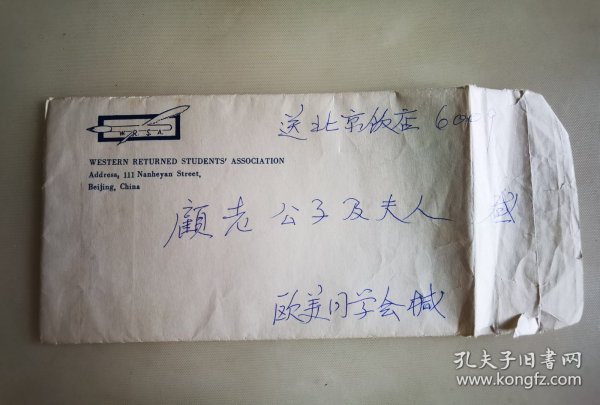 送北京饭店 6009
W R S A
WESTERN RETURNED STUDENTS' ASSOCIATION
Address, 111 Nanheyan Street,
Beijing, China
顧老公子及夫人
欧美同学会缄
孔夫子旧书网
www.kongfz.com